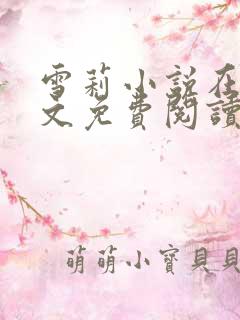 雪莉小說在
文免費閱讀
萌萌小寶貝貝